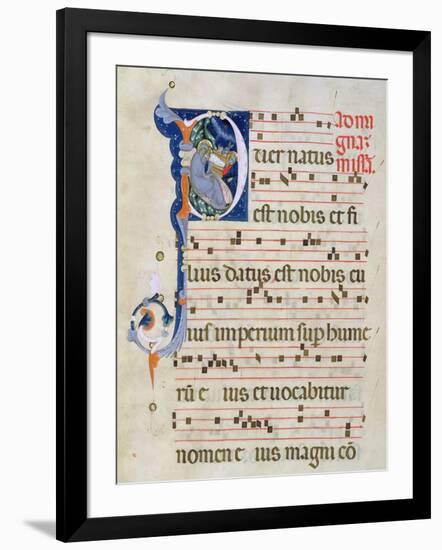 ad mi
gna:
missã.
Puer natus
est nobis et fi
lius datus est nobis cu
ius imperium sup hume
rũ e ius et uocabitur
nomen e ius magni cõ